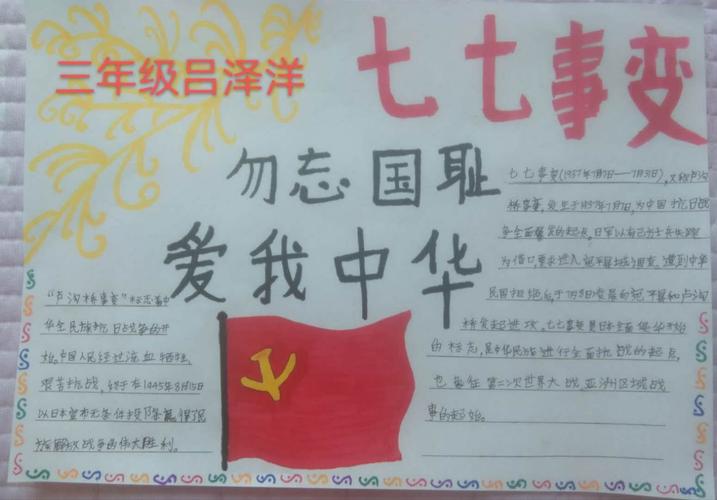 三年级吕泽洋
七七事变
勿忘国耻
爱我中华
七七事变(1937年7月7日——7月31日),又称卢沟
桥事变,发生于1937年7月7日,为中国抗日战
争全面爆发的起点,日军以有己方士兵失踪
为借口,要求进入宛平县城调查,遭到中华
民国拒绝后于7月8日向宛平县和卢沟
桥发起进攻,七七事变是日本全面侵华开始
的标志,是中华民族进行全面抗战的起点,
也象征第二次世界大战亚洲区域战
事的起始。
“卢沟桥事变”标志着中
华全民族抗日战争的开
始,中国人民经过流血牺牲,
艰苦抗战,终于在1945年8月15日
以日本宣布无条件投降赢得民
族解放战争的伟大胜利。